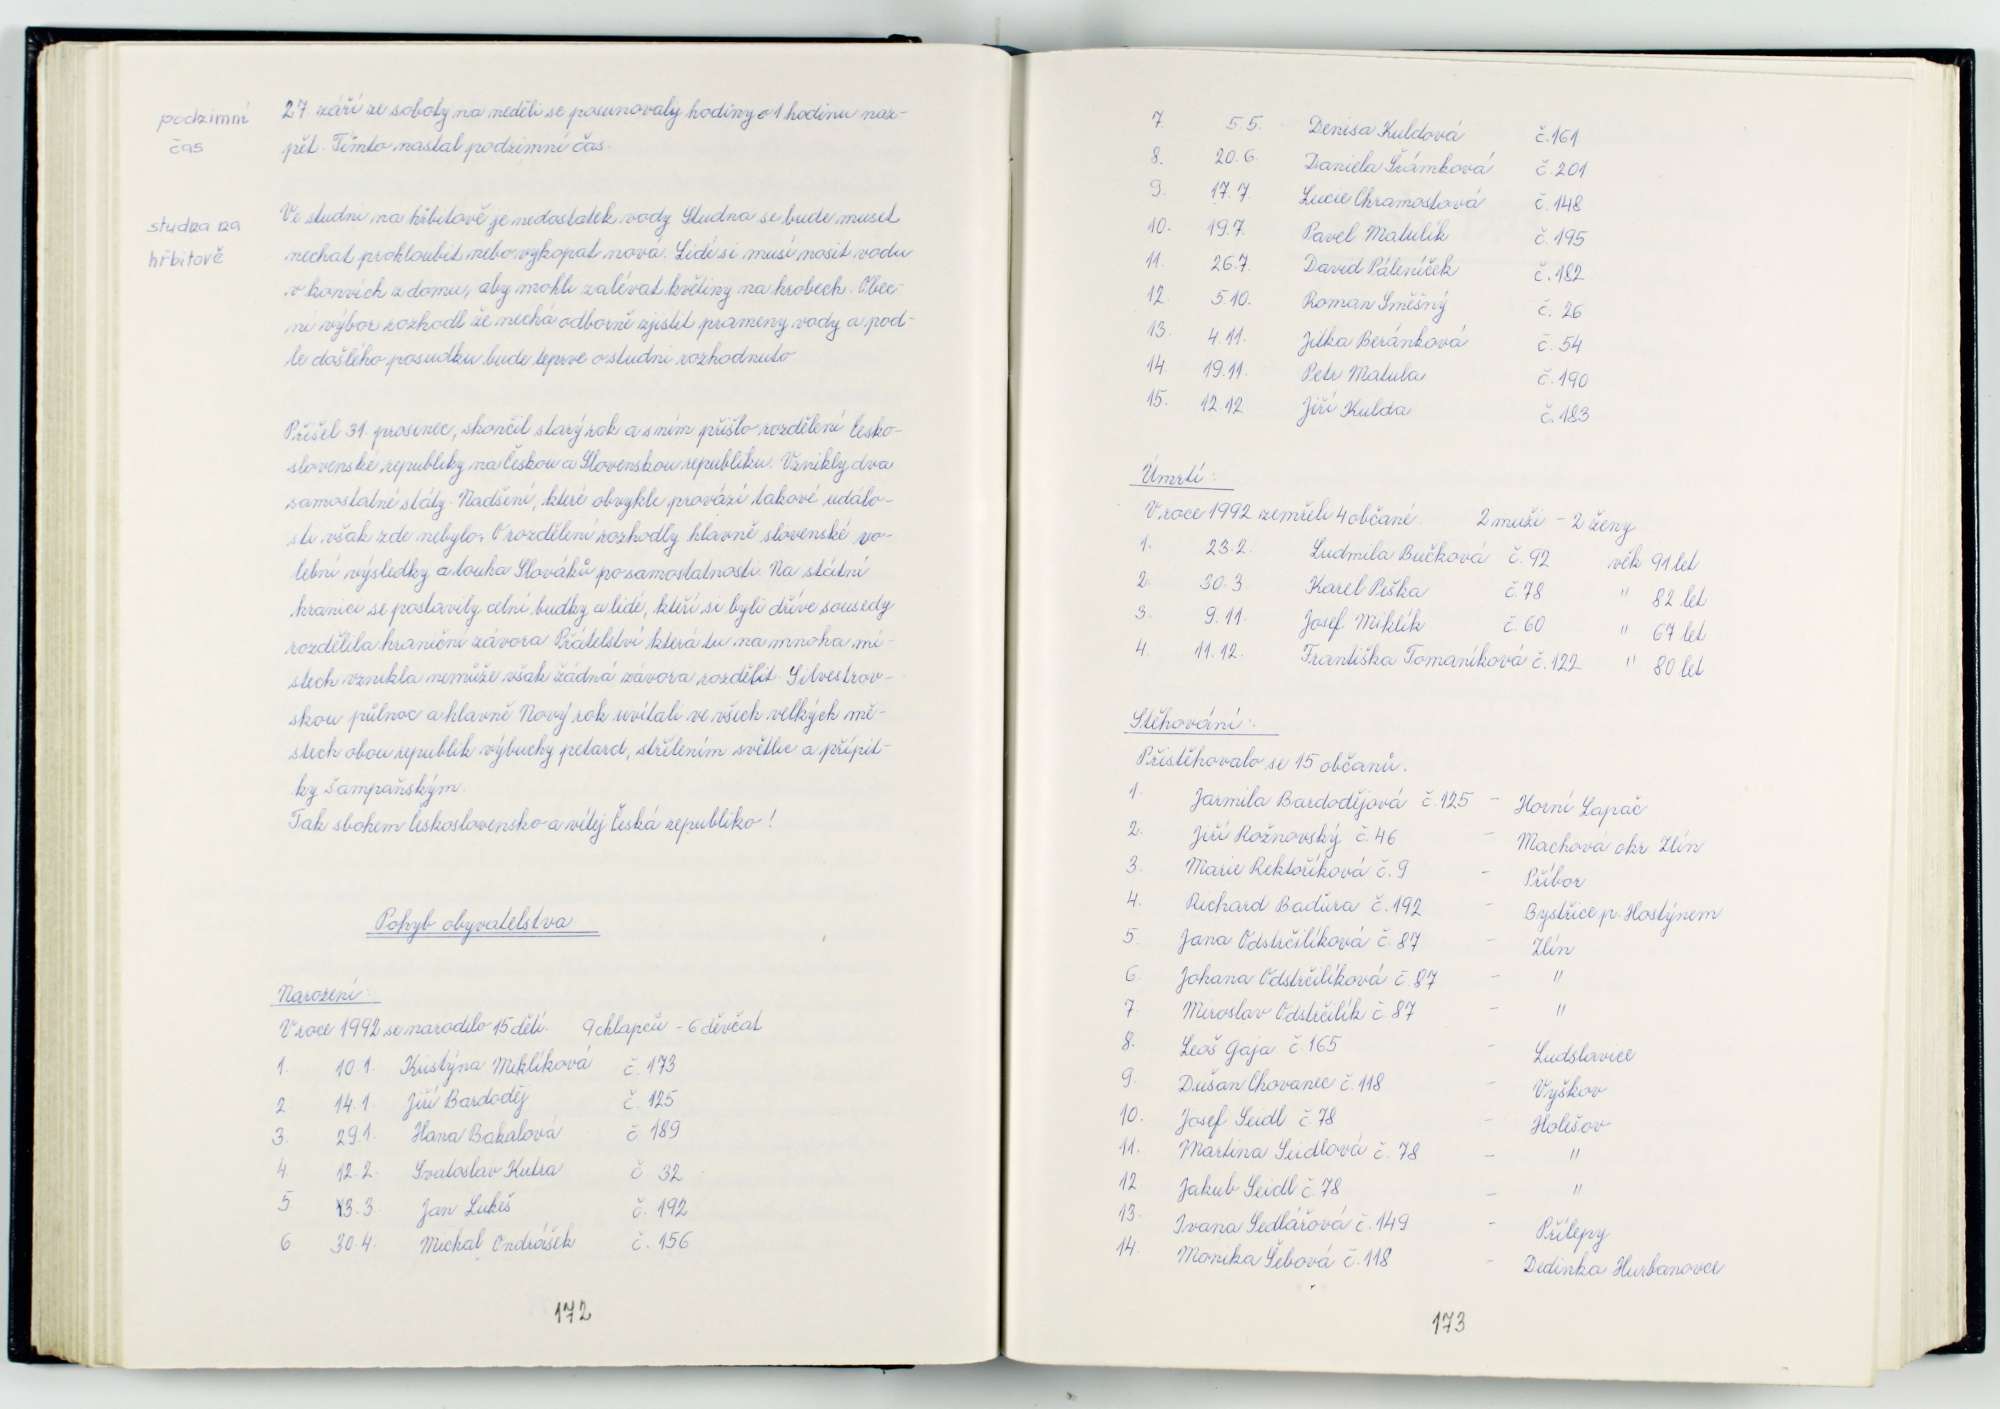 podzimní
čas
27. září ze soboty na neděli se posunovaly hodiny o 1 hodinu naz-
pět. Tímto nastal podzimní čas.
studna na
hřbitově
Ve studni na hřbitově je nedostatek vody Studna se bude muset
nechat prohloubit nebo vykopat nová. Lidé si musí nosit vodu
v konvích z domu, aby mohli zalévat květiny na hrobech. Obec-
ní výbor rozhodl že nechá odborně zjistit prameny vody a pod-
le došlého posudku bude teprve o studni rozhodnuto
Přišel 31. prosinec, skončil starý rok a s ním přišlo rozdělení Česko-
slovenské republiky na Českou a Slovenskou republiku. Vznikly dva
samostatné státy. Nadšení, které obvykle provází takové událo-
sti však zde nebylo. O rozdělení rozhodly hlavně slovenské vo-
lební výsledky a touha Slováků po samostatnosti. Na státní
hranici se postavily celní budky a lidé, kteří si byli dříve sousedy
rozdělila hraniční závora Přátelství která tu na mnoha mí-
stech vznikla nemůže však žádná závora rozdělit. Silvestrov-
skou půlnoc a hlavně Nový rok uvítali ve všech velkých mě-
stech obou republik výbuchy petard, střílením světlic a přípit-
ky šampaňským.
Tak sbohem Československo a vítej Česká republiko!
Pohyb obyvatelstva
Narození:
V roce 1992 se narodilo 15 dětí. 9 chlapců - 6 děvčat
1. 10.1. Kristýna Miklíková č. 173
2 14.1. Jiří Bardoděj č. 125
3. 29.1. Hana Bakalová č. 189
4 12.2. Svatoslav Kutra č 32
5 13.3. Jan Lukeš č. 192
6 30.4. Michal Ondrášek č. 156
172
7. 5.5. Denisa Kuldová č. 161
8. 20.6. Daniela Šrámková č. 201
9. 17.7. Lucie Chramostová č. 148
10. 19.7. Pavel Matulík č. 195
11. 26.7. David Páleníček č. 182
12. 5.10. Roman Směšný č. 26
13. 4.11. Jitka Beránková č. 54
14. 19.11. Petr Matula č. 190
15. 12.12. Jiří Kulda č. 183
Úmrtí:
V roce 1992 zemřeli 4 občané. 2 muži - 2 ženy
1. 23.2. Ludmila Bučková č. 92 věk 91 let
2. 30.3 Karel Peška č. 78 " 82 let
3. 9.11. Josef Miklík č. 60 " 67 let
4. 11.12. Františka Tomaníková č. 122 " 80 let
Stěhování:
Přistěhovalo se 15 občanů.
1. Jarmila Bardodějová č. 125 - Horní Lapač
2. Jiří Rožnovský č. 46 - Machová okr Zlín
3. Marie Rektoříková č. 9 - Příbor
4. Richard Baďura č. 192 - Bystřice p. Hostýnem
5. Jana Odstrčilíková č. 87 - Zlín
6. Johana Odstrčilíková č. 87 - "
7. Miroslav Odstrčilík č. 87 - "
8. Leoš Gaja č. 165 - Ludslavice
9. Dušan Chovanec č. 118 - Vyškov
10. Josef Seidl č. 78 - Holešov
11. Martina Seidlová č. 78 - "
12 Jakub Seidl č. 78 - "
13. Ivana Sedlářová č. 149 - Přílepy
14. Monika Šebová č. 118 - Dedinka Hurbanovce
173